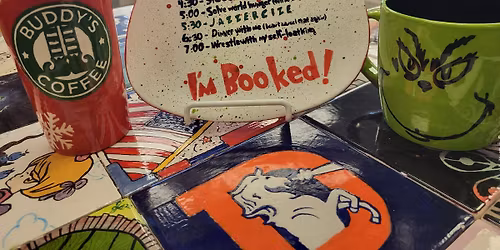 BUDDY'S
COFFEE
4:30 -
5:00 - Solve world hunger
5:30 - JAZZERCIZE
6:30 - Dinner with me (I can't cancel that again)
7:00 - Wrestle with my self-loathing
I'm Booked!